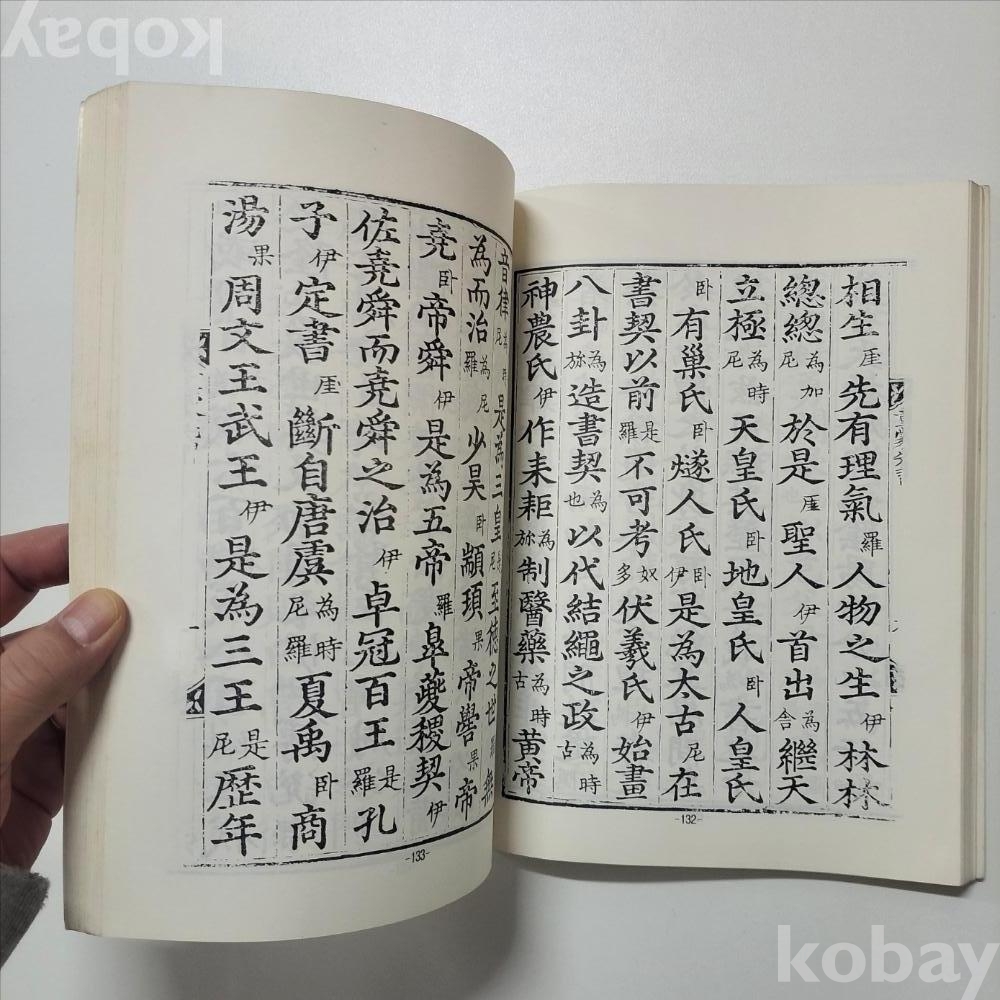 相生厓先有理氣羅人物之生伊林林
總總為加尼於是厓聖人伊首出為舍繼天
立極為時尼天皇氏卧地皇氏卧人皇氏
卧有巢氏卧燧人氏卧伊是為太古尼在
書契以前是羅不可考奴多伏羲氏伊始畫
八卦為旀造書契為也以代結繩之政為時古
神農氏伊作耒耜為旀制醫藥為時古黃帝
-132-
音律尼是為三皇尼至德之世羅無
為而治為尼羅少昊卧顓頊果帝嚳果帝
堯卧帝舜伊是為五帝羅臯夔稷契伊
佐堯舜而堯舜之治伊卓冠百王是羅孔
子伊定書厓斷自唐虞為時尼羅夏禹卧商
湯果周文王武王伊是為三王是尼歷年
-133-
kobay
kobay